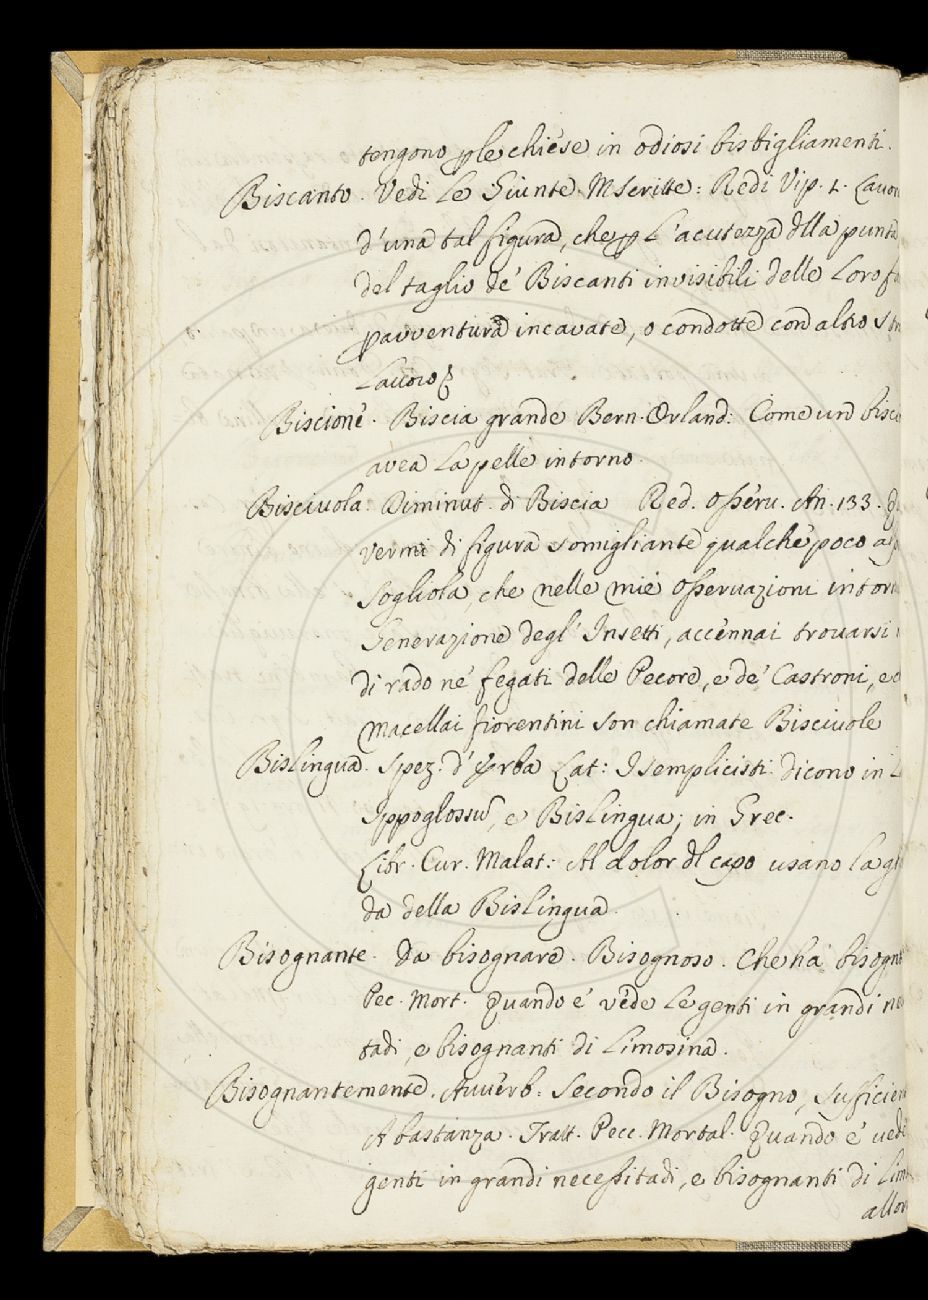 tengono ple chiese in odiosi bisbigliamenti.
Biscanto. Vedi le Giunte Mscritte: Redi Vip. 1. Lavor
d'una tal figura, che p l'acutezza dlla punta
del taglio de' Biscanti invisibili delle loro f
pavventura incavate, o condotte con altro st
lavoro
Biscione. Biscia grande Bern. Orland: Come un bisc
avea la pelle intorno.
Bisciuola. Diminut. di Biscia Red. Osseru. An. 133.
vermi di figura somigliante qualche poco a
sogliola, che nelle mie osseruazioni intor
Generazione degl' Insetti, accennai trouarsi
di rado ne' fegati delle Pecore, e de' Castroni, e
macellai fiorentini son chiamate Bisciuole
Bislingua. Spez. d'Erba Lat: I semplicisti dicono in L
Ippoglossu, e Bislingua; in Grec.
Libr. Cur. Malat: Al dolor dl capo usano la g
da della Bislingua.
Bisognante. da bisognare. Bisognoso. Che ha bisogn
Pec. Mort. Quando e' vede le genti in grandi ne
tadi, e bisognanti di limosina.
Bisognantemente. Avverb. Secondo il Bisogno, sufficien
A bastanza. Tratt. Pecc. Mortal. Quando e' ved
genti in grandi necessitadi, e bisognanti di lim
allor